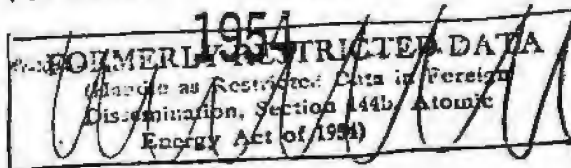 1954
FORMERLY RESTRICTED DATA
(Handle as Restricted Data in Foreign
Dissemination, Section 144b, Atomic
Energy Act of 1954)